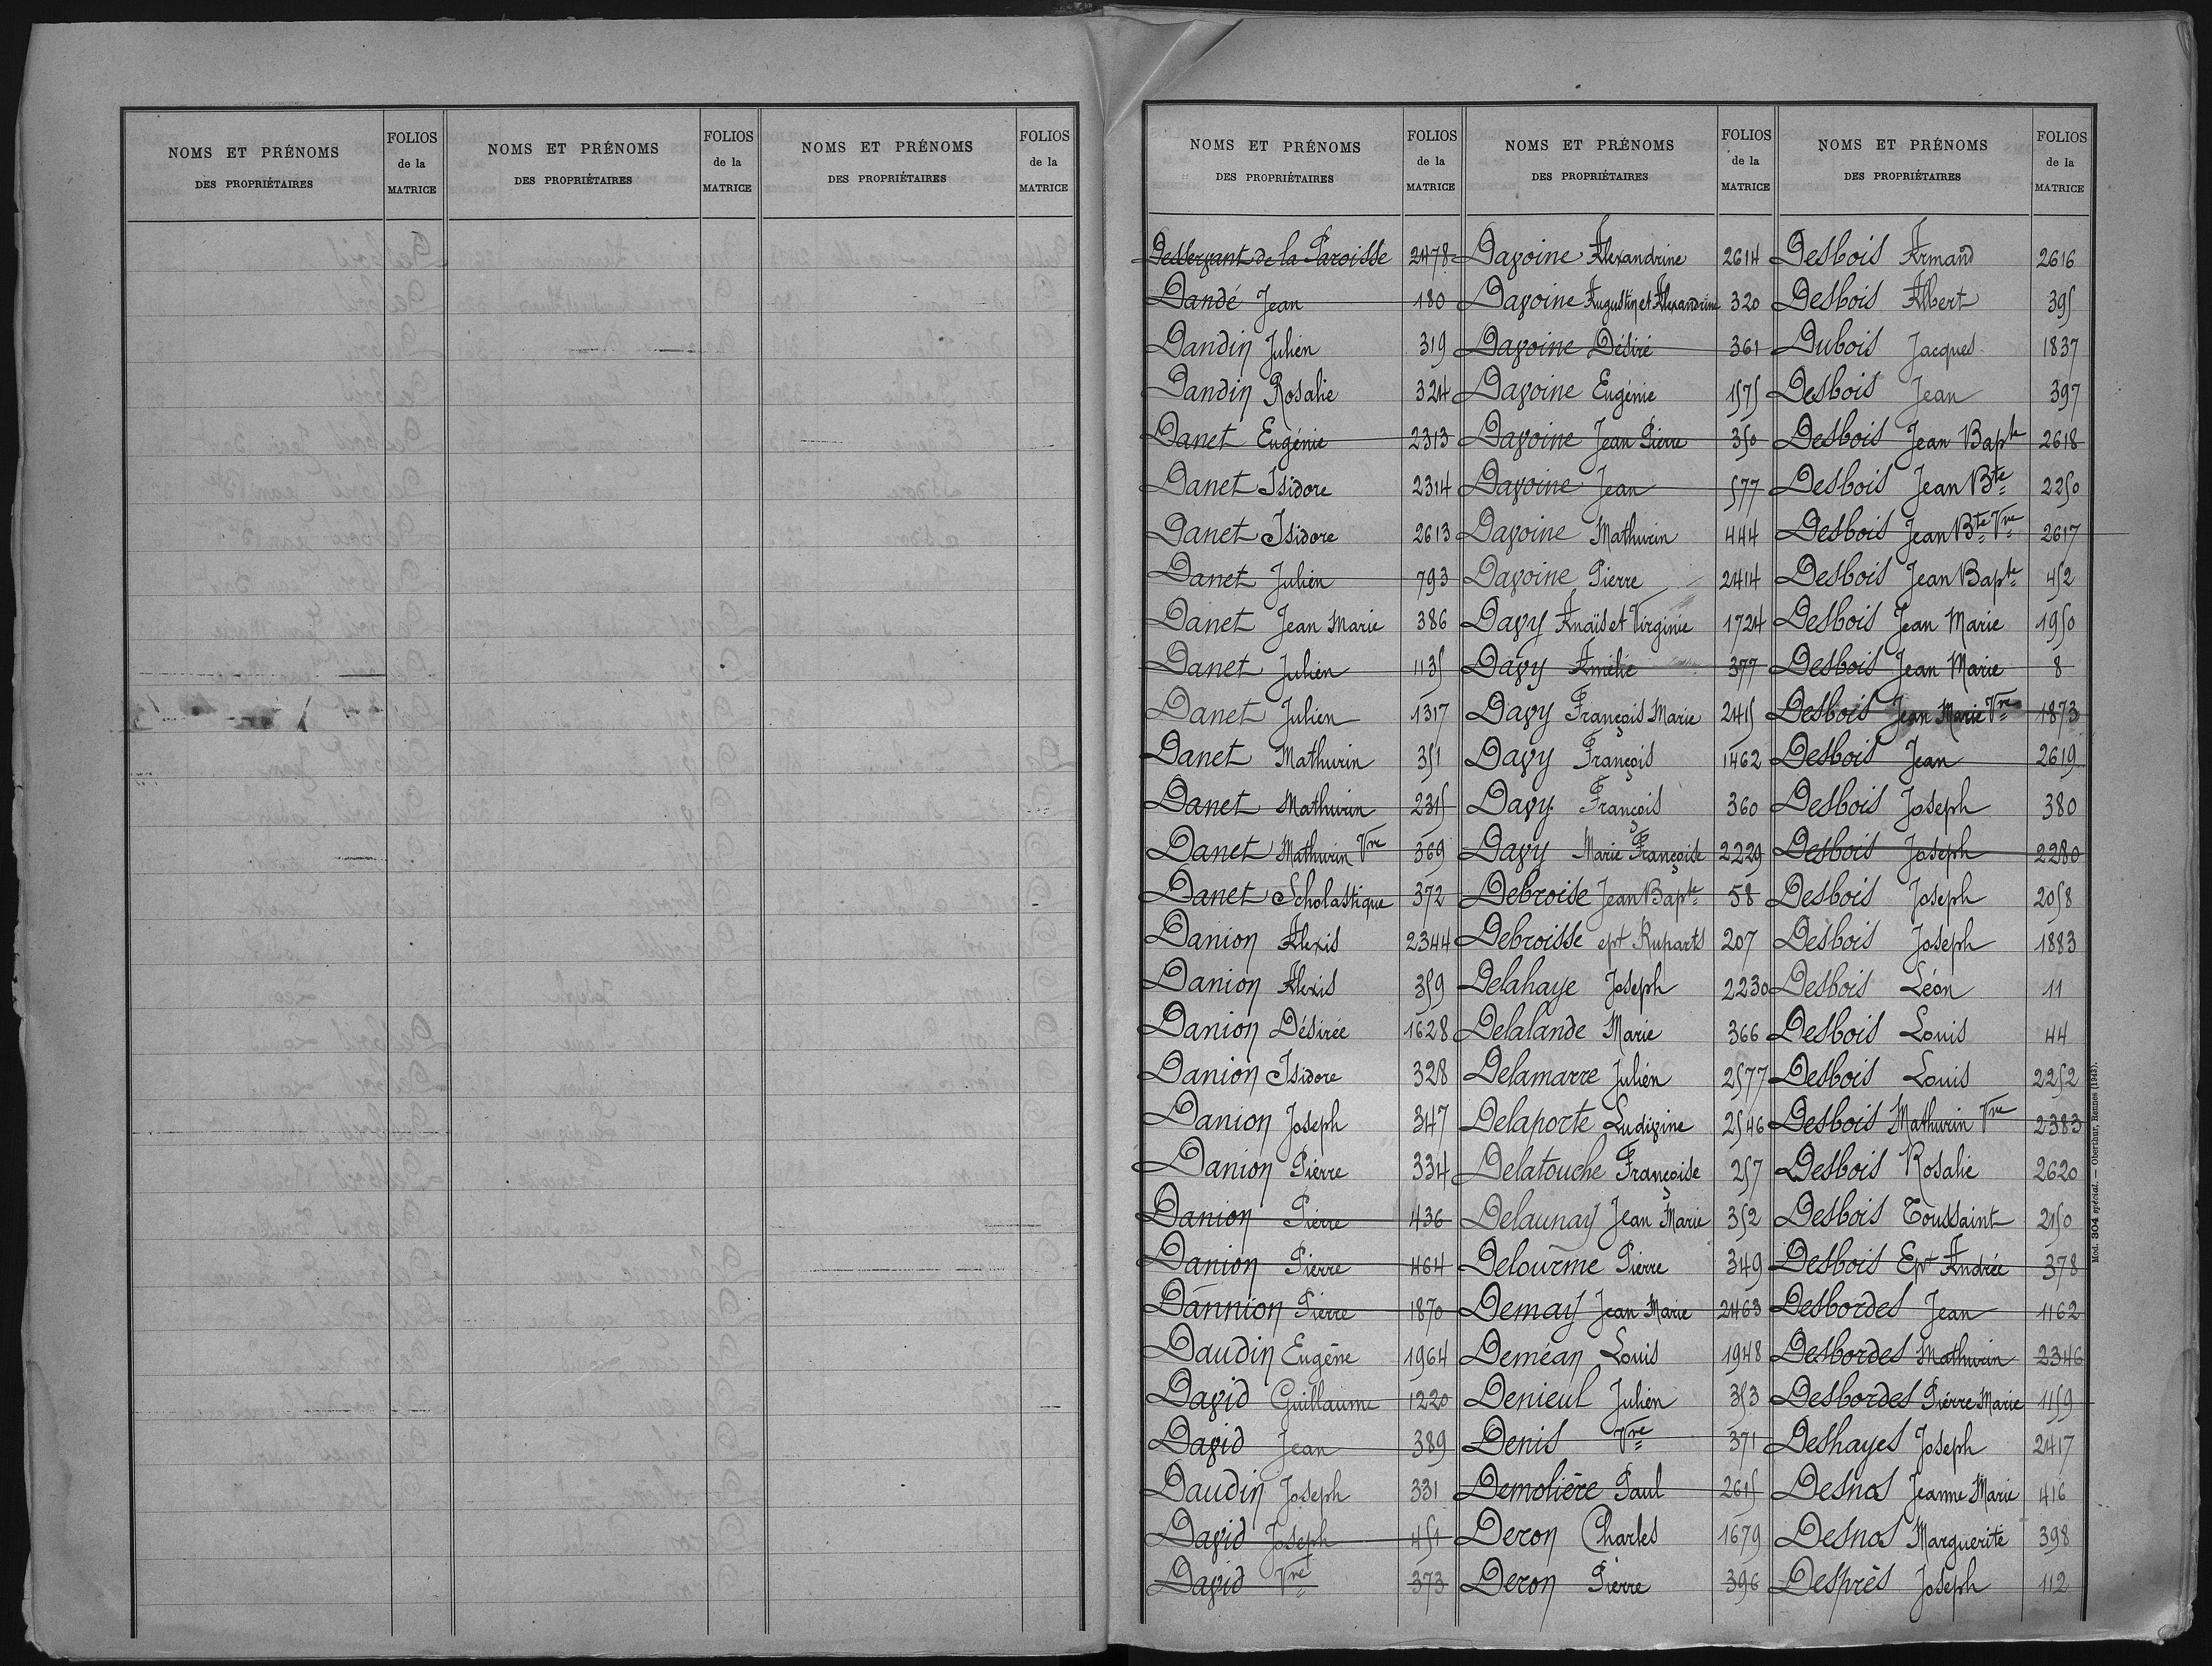 NOMS ET PRÉNOMS DES PROPRIÉTAIRES FOLIOS de la MATRICE NOMS ET PRÉNOMS DES PROPRIÉTAIRES FOLIOS de la MATRICE NOMS ET PRÉNOMS DES PROPRIÉTAIRES FOLIOS de la MATRICE
NOMS ET PRÉNOMS DES PROPRIÉTAIRES FOLIOS de la MATRICE NOMS ET PRÉNOMS DES PROPRIÉTAIRES FOLIOS de la MATRICE NOMS ET PRÉNOMS DES PROPRIÉTAIRES FOLIOS de la MATRICE
Desservant de la Paroisse 2478
Dandé Jean 180
Dandin Julien 319
Dandin Rosalie 324
Danet Eugénie 2313
Danet Isidore 2314
Danet Isidore 2613
Danet Julien 793
Danet Jean Marie 386
Danet Julien 1135
Danet Julien 1317
Danet Mathurin 351
Danet Mathurin 2315
Danet Mathurin Vve 369
Danet Scholastique 372
Danion Alexis 2344
Danion Alexis 359
Danion Désirée 1628
Danion Isidore 328
Danion Joseph 347
Danion Pierre 334
Danion Pierre 436
Danion Pierre 464
Dannion Pierre 1870
Daudin Eugène 1964
David Guillaume 1220
David Jean 389
Daudin Joseph 331
David Joseph 451
David Vve 373
Davoine Alexandrine 2614
Davoine Augustin et Alexandrine 320
Davoine Désiré 361
Davoine Eugénie 1575
Davoine Jean Pierre 350
Davoine Jean 577
Davoine Mathurin 444
Davoine Pierre 2414
Davy Anaïs et Virginie 1724
Davy Amélie 377
Davy François Marie 2415
Davy François 1462
Davy François 360
Davy Marie Françoise 2229
Debroise Jean Bapte 58
Debroisse ept Ruparts 207
Delahaye Joseph 2230
Delalande Marie 366
Delamarre Julien 2577
Delaporte Ludivine 2546
Delatouche Françoise 257
Delaunay Jean Marie 352
Delourme Pierre 349
Demay Jean Marie 2463
Deméan Louis 1948
Denieul Julien 353
Denis Vve 371
Demolière Paul 2615
Deron Charles 1679
Deron Pierre 396
Desbois Armand 2616
Desbois Albert 395
Dubois Jacques 1837
Desbois Jean 397
Desbois Jean Bapte 2618
Desbois Jean Bte 2250
Desbois Jean Bte Vve 2617
Desbois Jean Bapte 452
Desbois Jean Marie 1950
Desbois Jean Marie 8
Desbois Jean Marie Vve 1873
Desbois Jean 2619
Desbois Joseph 380
Desbois Joseph 2280
Desbois Joseph 2058
Desbois Joseph 1883
Desbois Léon 11
Desbois Louis 44
Desbois Louis 2252
Desbois Mathurin Vve 2383
Desbois Rosalie 2620
Desbois Toussaint 2150
Desbois Ept Andrée 378
Desbordes Jean 1162
Desbordes Mathurin 2346
Desbordes Pierre Marie 1159
Deshayes Joseph 2417
Desnos Jeanne Marie 416
Desnos Marguerite 398
Desprès Joseph 112
Mod. 304 spécial. — Oberthur, Rennes (1943).